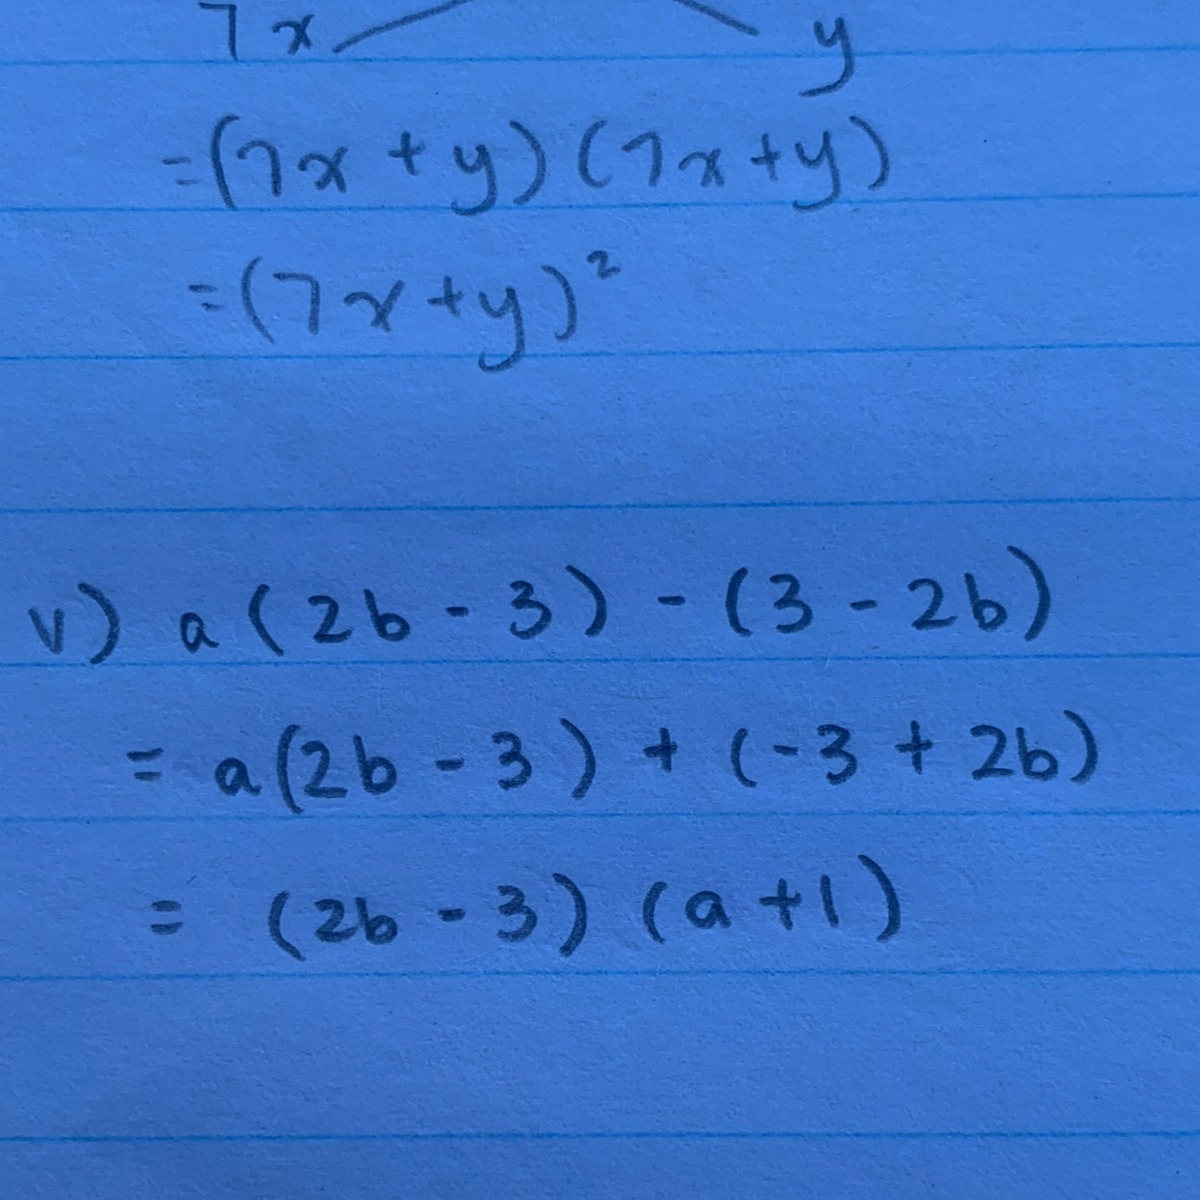 7x y
=(7x + y) (7x+y)
=(7x+y)²
v) a(2b - 3) - (3 - 2b)
= a(2b - 3) + (-3 + 2b)
= (2b - 3) (a+1)